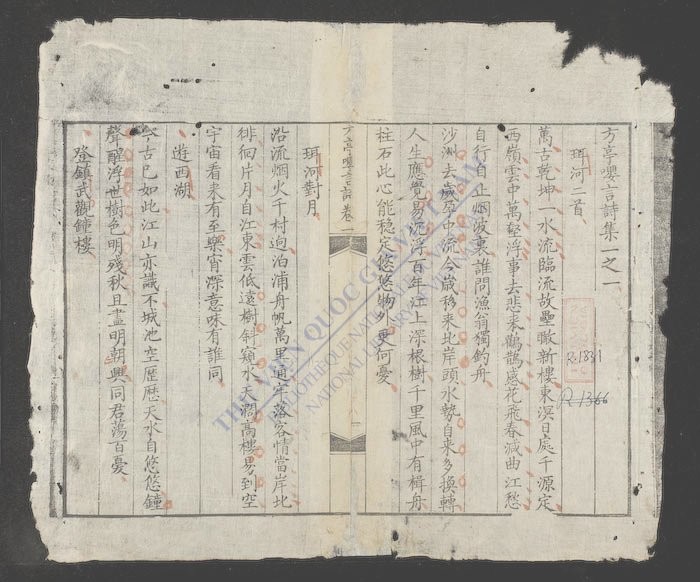 方亭嚶言詩集一之一
珥河二首
萬古乾坤一水流臨流故壘瞰新樓東溟日處千源定
西嶺雲中萬壑浮事去悲來鵲鵲感花飛春減曲江愁
自行自止烟波裏誰問漁翁獨釣舟
沙洲去歲在中流今歲移來比岸頭水勢自來多換轉
人生應覺易沉浮百年江上深根樹千里風中有楫舟
柱石此心能穩定悠悠物外更何憂
方亭嚶言詩卷一
珥河對月
沿流烟火千村逈泊浦舟帆萬里通岸落客情當岸北
徘徊片月自江東雲低遠樹斜窺水天濶高樓易到空
宇宙看来有至樂宵深意味有誰同
遊西湖
今古已如此江山亦識不城池空歷歷天水自悠悠鐘
聲醒浮世樹色明殘秋且盡明朝興同君蕩百憂
登鎮武觀鐘樓
R.1831
R.1366
THƯ VIỆN QUỐC GIA VIỆT NAM
BIBLIOTHÈQUE NATIONALE DU VIETNAM
NATIONAL LIBRARY OF VIETNAM